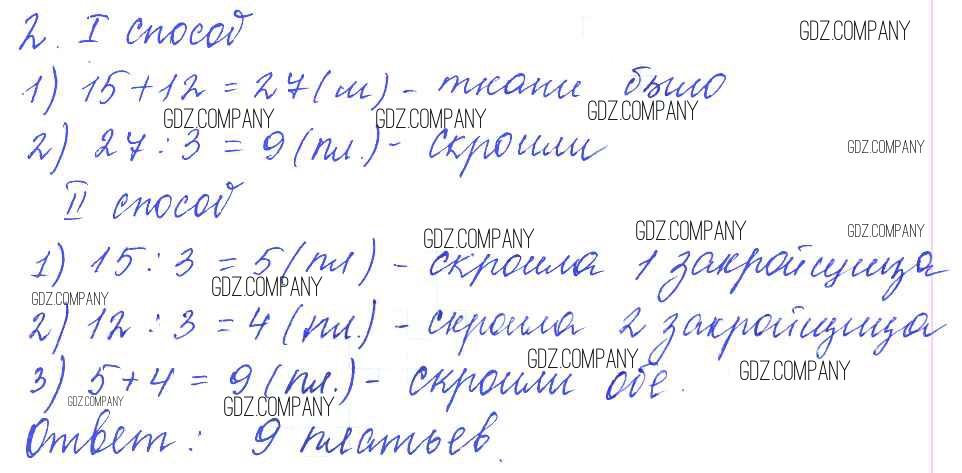 2. I способ
GDZ.COMPANY
1) 15+12 = 27(м) - ткани было
GDZ.COMPANY GDZ.COMPANY GDZ.COMPANY
2) 27 : 3 = 9 (пл.) - скроили
GDZ.COMPANY
II способ
GDZ.COMPANY GDZ.COMPANY GDZ.COMPANY
1) 15 : 3 = 5 (пл) - скроила 1 закройщица
GDZ.COMPANY GDZ.COMPANY
2) 12 : 3 = 4 (пл.) - скроила 2 закройщица
GDZ.COMPANY GDZ.COMPANY
3) 5 + 4 = 9 (пл.) - скроили обе.
GDZ.COMPANY GDZ.COMPANY
Ответ: 9 платьев.